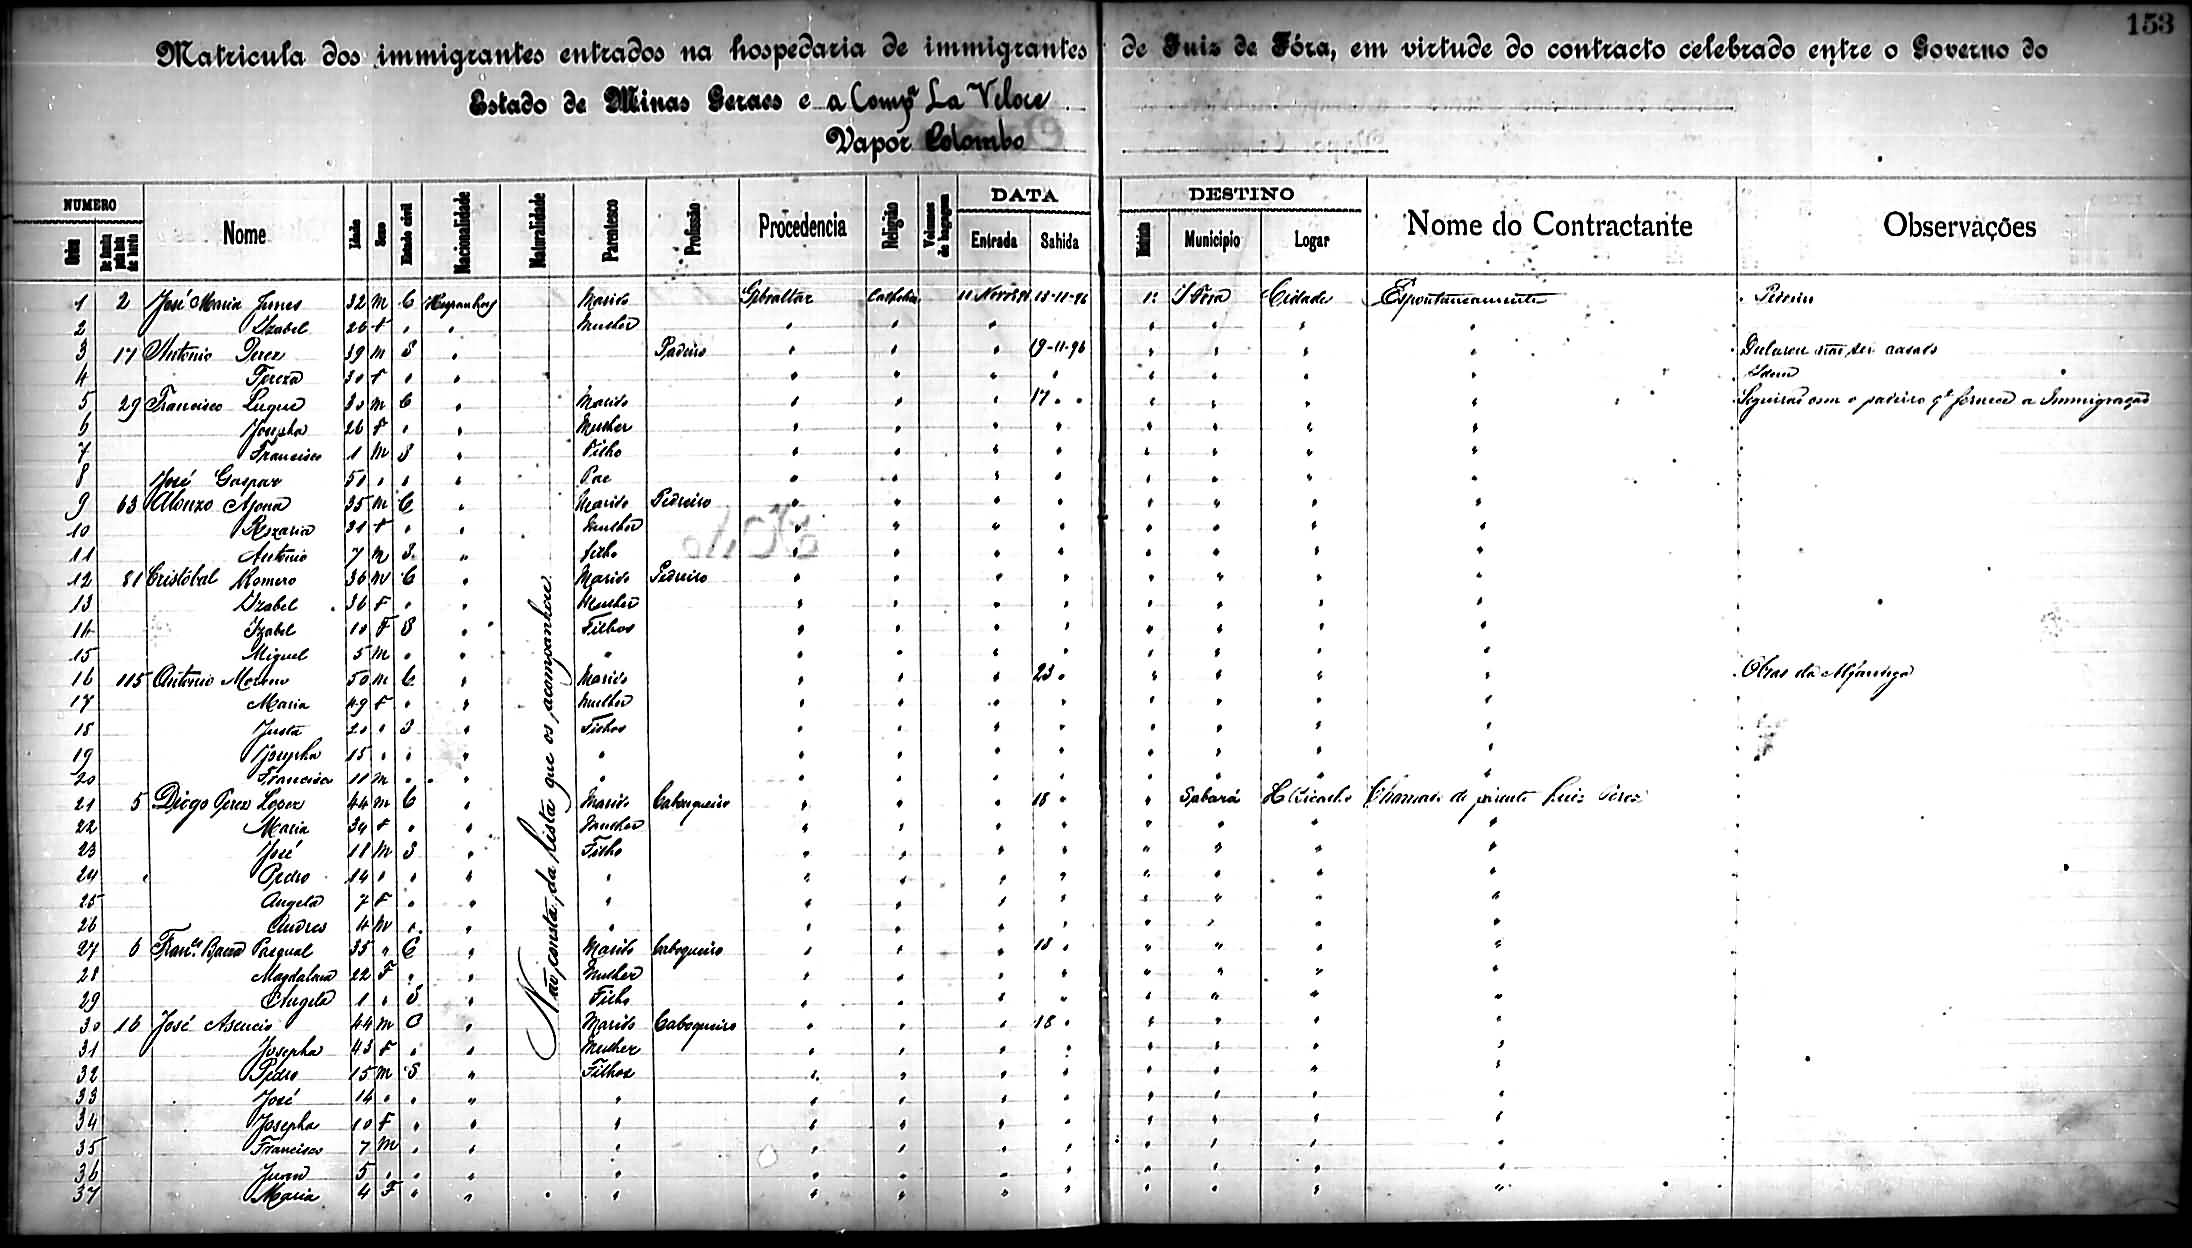 153
Matricula dos immigrantes entrados na hospedaria de immigrantes de Juiz de Fóra, em virtude do contracto celebrado entre o Governo do
Estado de Minas Geraes e a Compª La Veloce
Vapor Colombo
NUMERO Nome Idade Sexo Estado civil Nacionalidade Naturalidade Parentesco Profissão Procedencia Religião Volumes de bagagem DATA DESTINO Nome do Contractante Observações
Ordem Entrada Sahida Municipio Logar
Não consta da lista que os acompanhou
1 2 José Maria 32 M C Hespanhol Marido Gibraltar Catholica 11 Novº 96 18-11-96 J Fora Cidade Espontaneamente Pedreiro
2 Izabel 26 F " " Mulher " " " " " " "
3 17 Antonio Perez 39 M S " Padeiro " " " 19-11-96 " " " " Declarou não ser casado
4 Tereza 30 F " " " " " " " " " " Idem
5 29 Francisco Luque 30 M C " Marido " " " 17 " " " " " " Seguirão com o padeiro qº fornece a Immigração
6 Josepha 26 F " " Mulher " " " " " " " "
7 Francisco 1 M S " Filho " " " " " " " "
8 José Gaspar 50 " " " Pae " " " " " " " "
9 63 Alonzo 35 M C " Marido Pedreiro " " " " " " " "
10 Rozaria 31 F " " Mulher " " " " " " " "
11 Antonio 7 M S " filho " " " " " " " "
12 81 Cristobal Romero 36 M C " Marido Pedreiro " " " " " " " "
13 Izabel 36 F " " Mulher " " " " " " " "
14 Izabel 10 F S " Filhos " " " " " " " "
15 Miguel 5 M " " " " " " " " " " "
16 115 Antonio Moreno 50 M C " Marido " " " 23 " " " " " Obras da
17 Maria 49 F " " Mulher " " " " " " " "
18 Justa 20 " S " Filhos " " " " " " " "
19 Josepha 15 " " " " " " " " " " " "
20 Francisco 11 M " " " " " " " " " " "
21 5 Diogo Perez Lopez 44 M C " Marido Cabouqueiro " " " 18 " " Sabará Chamado de parente Luiz Perez
22 Maria 34 F " " Mulher " " " " " " " "
23 José 18 M S " Filho " " " " " " " "
24 Pedro 14 " " " " " " " " " " " "
25 Angela 7 F " " " " " " " " " " "
26 Andres 4 M " " " " " " " " " " "
27 6 Franco Baena Pasqual 35 " C " Marido Caboqueiro " " " 18 " " " " "
28 Magdalena 22 F " " Mulher " " " " " " " "
29 Angela 1 " S " Filho " " " " " " " "
30 16 José Asencio 44 M C " Marido Caboqueiro " " " 18 " " " " "
31 Josepha 43 F " " Mulher " " " " " " " "
32 Pedro 15 M S " Filhos " " " " " " " "
33 José 14 " " " " " " " " " " " "
34 Josepha 10 F " " " " " " " " " " "
35 Francisco 7 M " " " " " " " " " " "
36 Juan 5 " " " " " " " " " " " "
37 Maria 4 F " " " " " " " " " " "